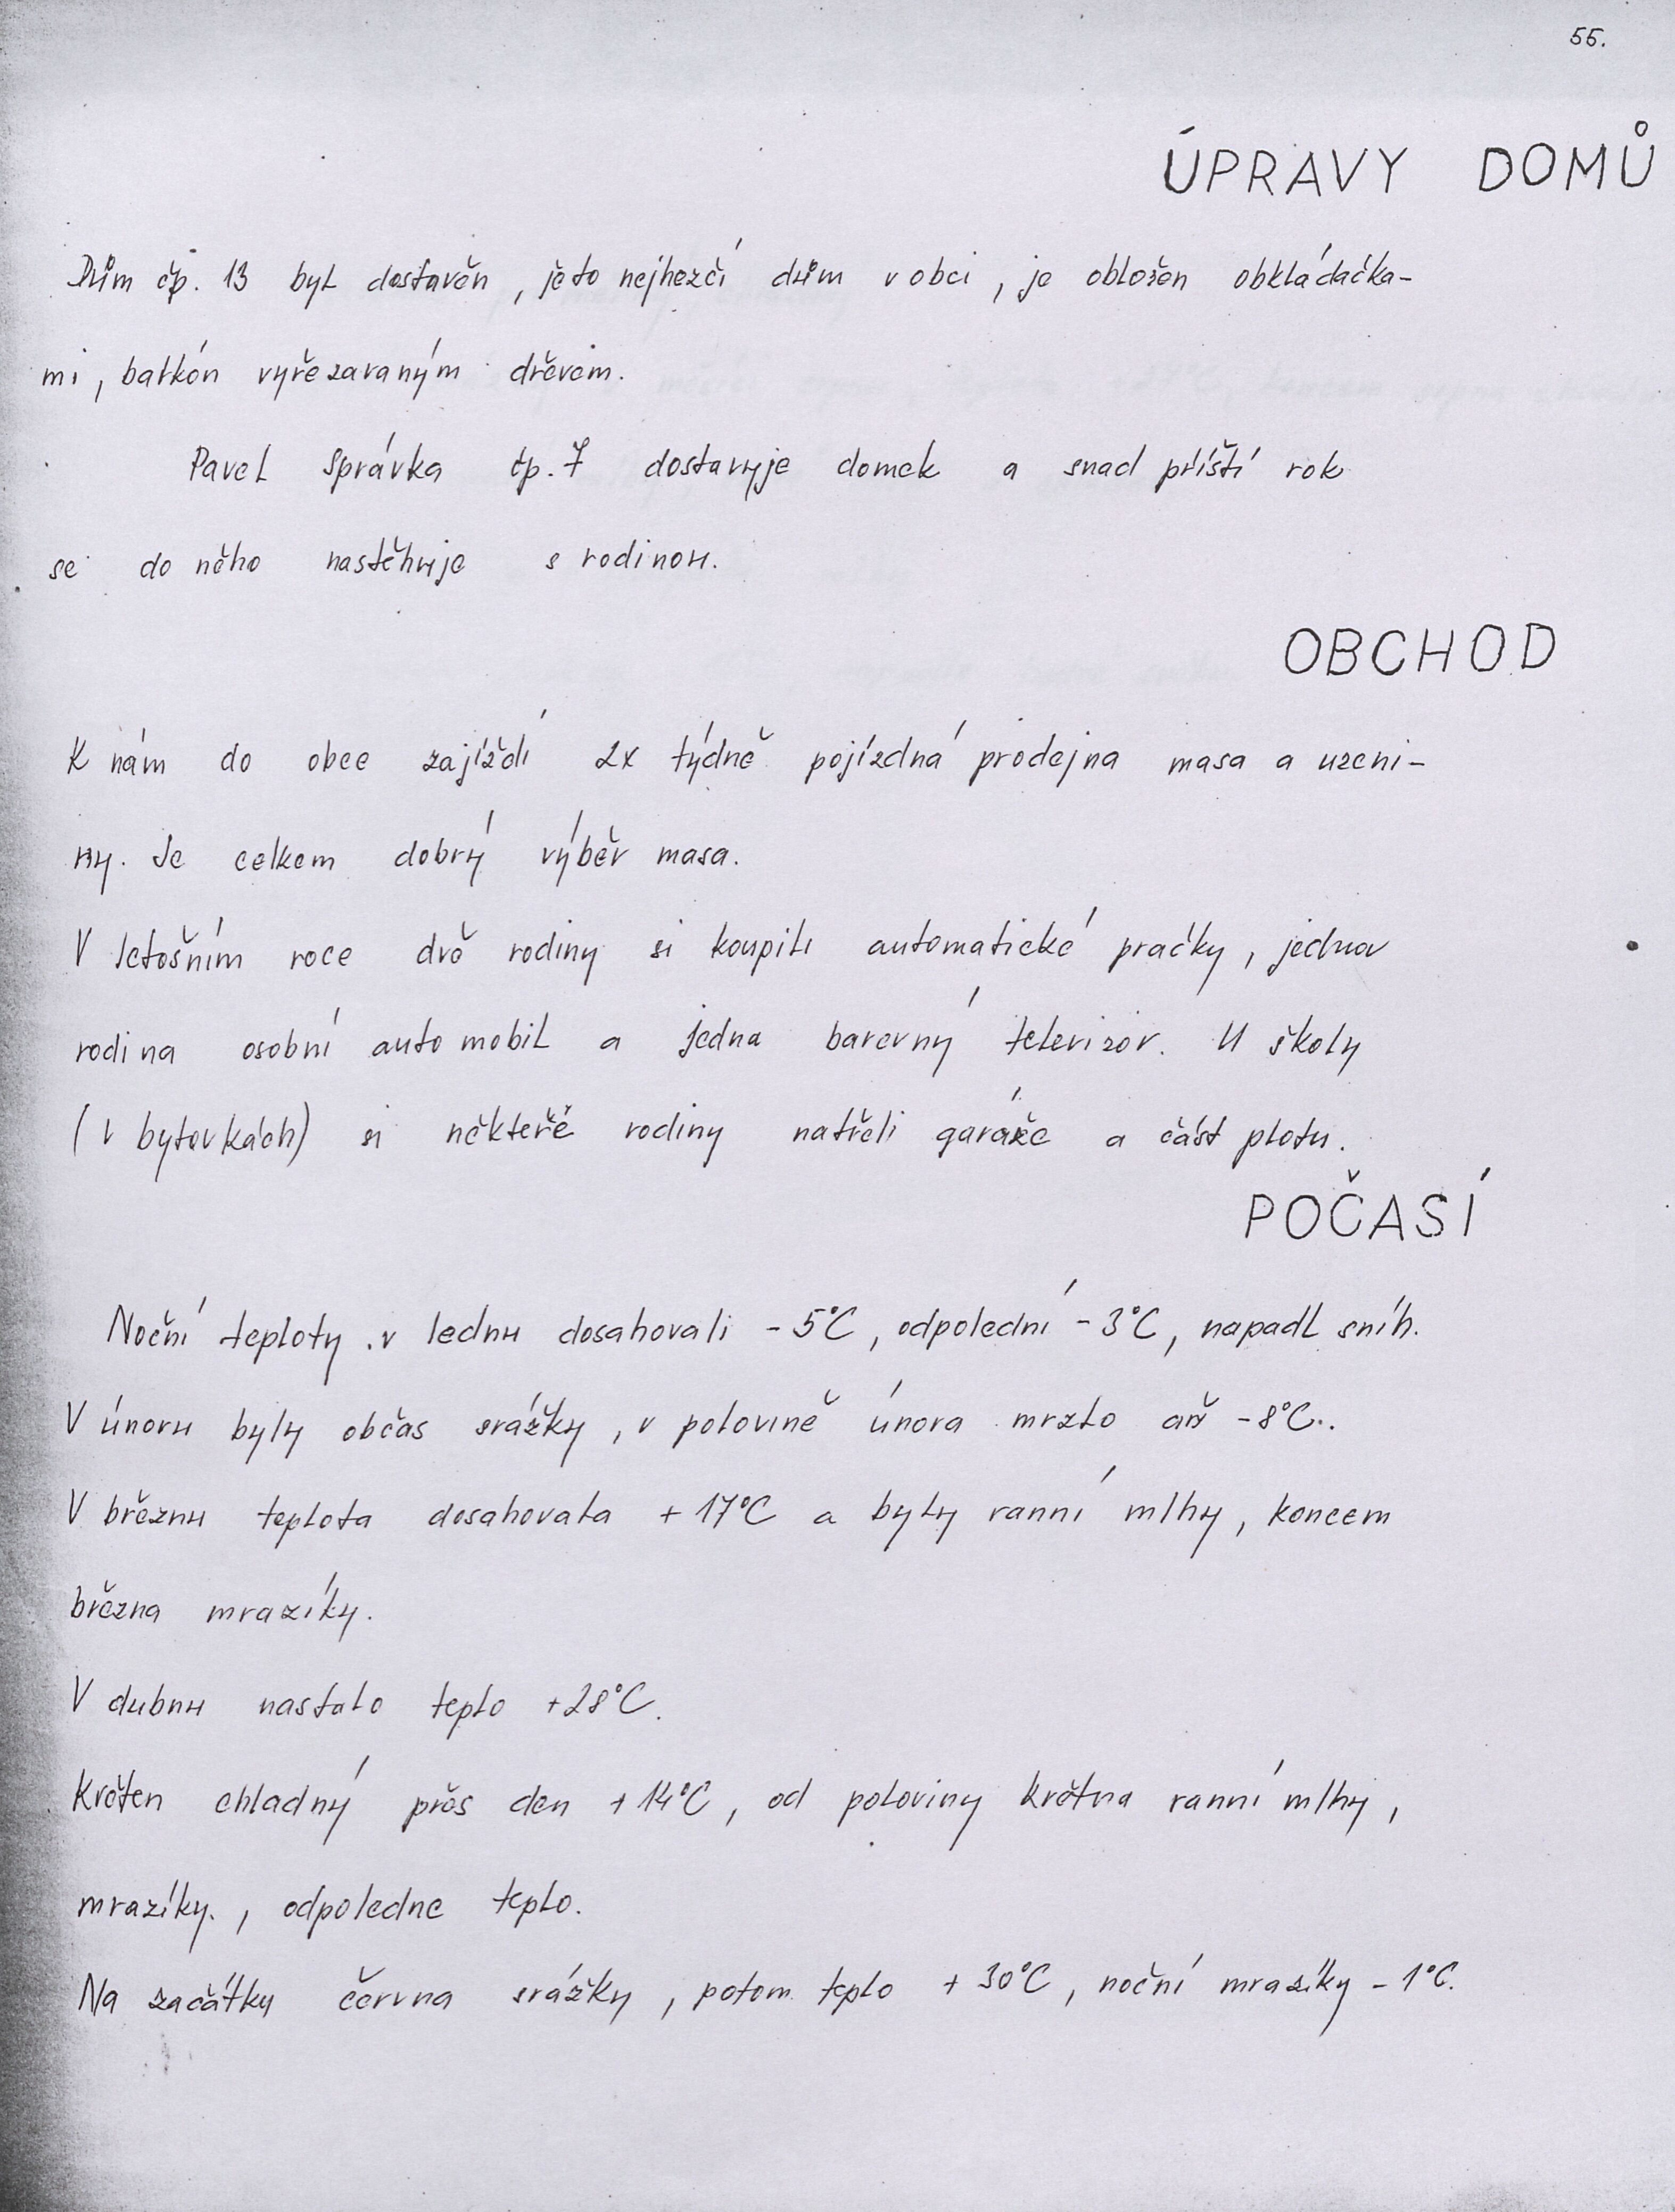 55.
ÚPRAVY DOMŮ
Dům čp. 13 byl dostavěn, je to nejhezčí dům v obci, je obložen obkládačka-
mi, balkón vyřezavaným dřevem.
Pavel Správka čp. 7 dostavuje domek a snad příští rok
se do něho nastěhuje s rodinou.
OBCHOD
K nám do obce zajíždí 2x týdně pojízdná prodejna masa a uzeni-
ny. Je celkem dobrý výběr masa.
V letošním roce dvě rodiny si koupili automatické pračky, jedna
rodina osobní automobil a jedna barevný televizor. U školy
(v bytovkách) si někteřé rodiny natřeli garáže a část plotu.
POČASÍ
Noční teploty v lednu dosahovali -5°C, odpolední -3°C, napadl sníh.
V únoru byly občas srážky, v polovině února mrzlo až -8°C.
V březnu teplota dosahovala +17°C a byly ranní mlhy, koncem
března mrazíky.
V dubnu nastalo teplo +28°C.
Květen chladný přes den +14°C, od poloviny května ranní mlhy,
mrazíky., odpoledne teplo.
Na začátky června srážky, potom teplo +30°C, noční mrazíky -1°C.